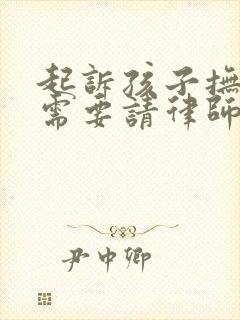 起訴孩子撫
需要請律師
尹中卿